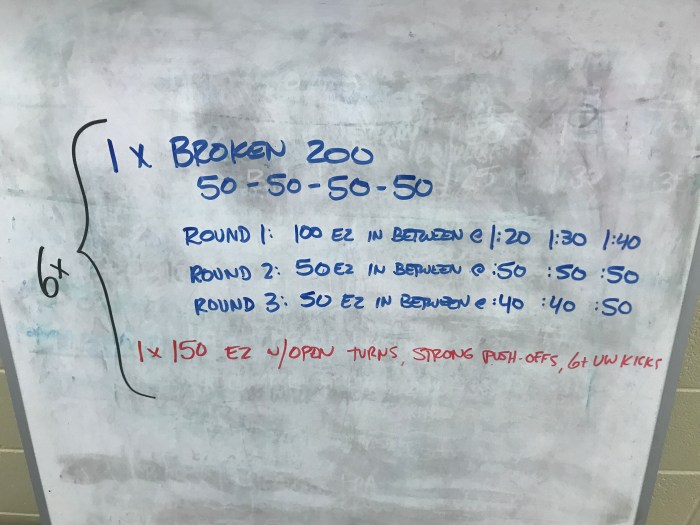 1 x BROKEN 200
50 - 50 - 50 - 50
ROUND 1: 100 EZ IN BETWEEN @ 1:20 1:30 1:40
6x
ROUND 2: 50 EZ IN BETWEEN @ :50 :50 :50
ROUND 3: 50 EZ IN BETWEEN @ :40 :40 :50
1x 150 EZ w/OPEN TURNS, STRONG PUSH-OFFS, 6+ UW KICKS